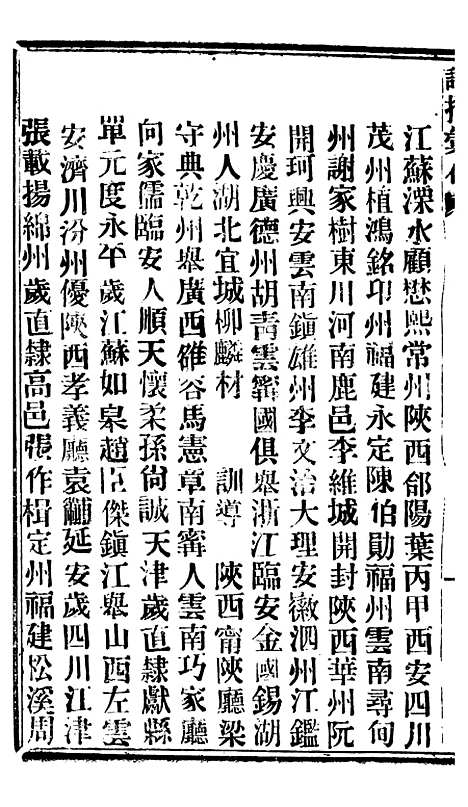 江蘇溧水顧懋熙常州陝西郃陽葉丙甲西安四川
茂州植鴻銘卭州福建永定陳伯勛福州雲南尋甸
州謝家樹東川河南鹿邑李維城開封陝西華州阮
開珂興安雲南鎭雄州李文治大理安徽泗州江鑑
安慶廣德州胡靑雲寗國俱舉浙江臨安金國錫湖
州人湖北宜城柳麟材　訓導　陝西甯陝廳梁
守典乾州舉廣西雒容馬憲章南寗人雲南巧家廳
向家儒臨安人順天懷柔孫尙誠天津歲直隸獻縣
單元度永年歲江蘇如皋趙臣傑鎭江舉山西左雲
安濟川汾州優陝西孝義廳袁黼延安歲四川江津
張載揚綿州歲直隸高邑張作楫定州福建松溪周